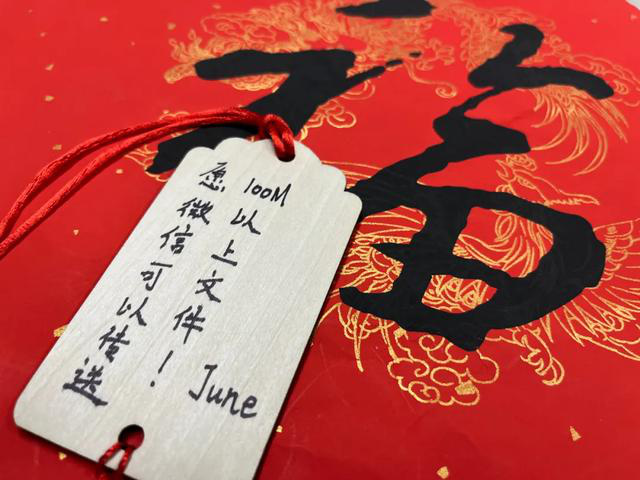 福
愿微信可以传送
100M以上文件！
June